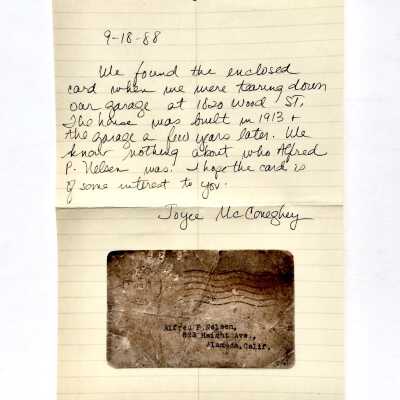 9-18-88
We found the enclosed
card when we were tearing down
our garage at 1820 Wood ST.
The house was built in 1913 +
the garage a few years later. We
know nothing about who Alfred
P. Nelsen was. I hope the card is
of some interest to you.
Joyce McConeghey
Alfred P. Nelsen,
Haight Ave.,
Alameda, Calif.